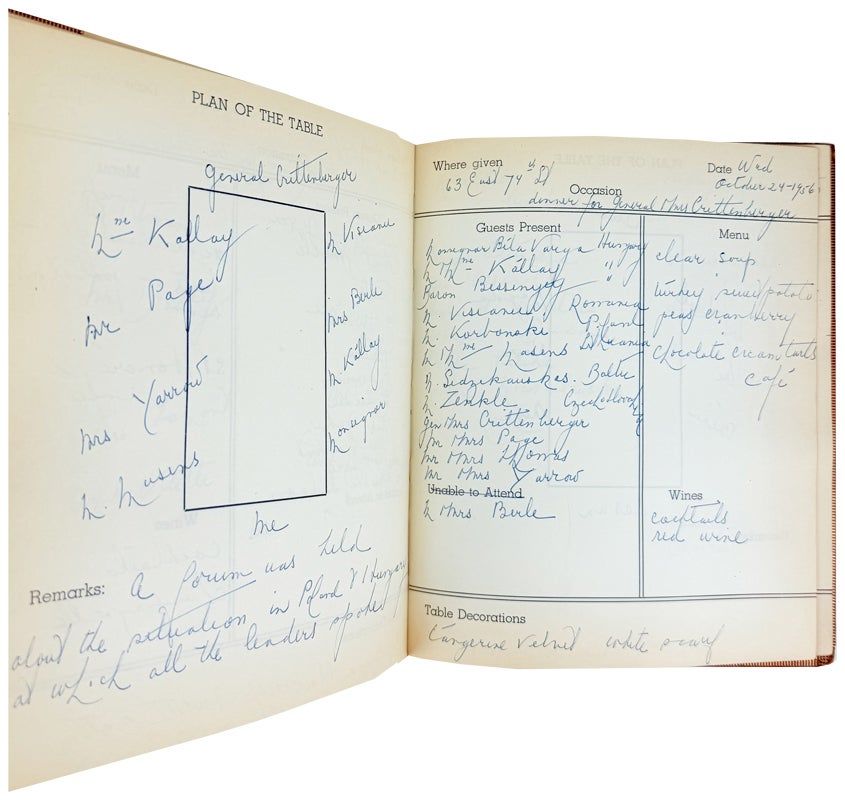 PLAN OF THE TABLE
General Crittenberger
Mme Kallay
M Visianu
Mr Page
Mrs Berle
M. Kállay
Mrs Yarrow
Monsignor
M. Masens
Me
Remarks: A forum was held
about the situation in Poland & Hungary
at which all the leaders spoke
Where given
63 East 74th St
Date Wed
October 24-1956
Occasion
dinner for General Mrs Crittenberger
Guests Present
Monsignor Béla Varga Hungary
M Mme Kállay " "
Baron Bessenyey "
M. Visianu Romania
M. Korbonski Poland
M Mme Masens Lithuania
M. Sidzikauskas. Baltic
M. Zenkle Czechoslovakia
Gen Mrs Crittenberger
Mr Mrs Page
Mr Mrs Thomas
Mr Mrs Yarrow
Unable to Attend
M Mrs Berle
Menu
clear soup
turkey sweet potato
peas cranberry
chocolate cream tarts
café
Wines
cocktails
red wine
Table Decorations
tangerine velvet white scarf